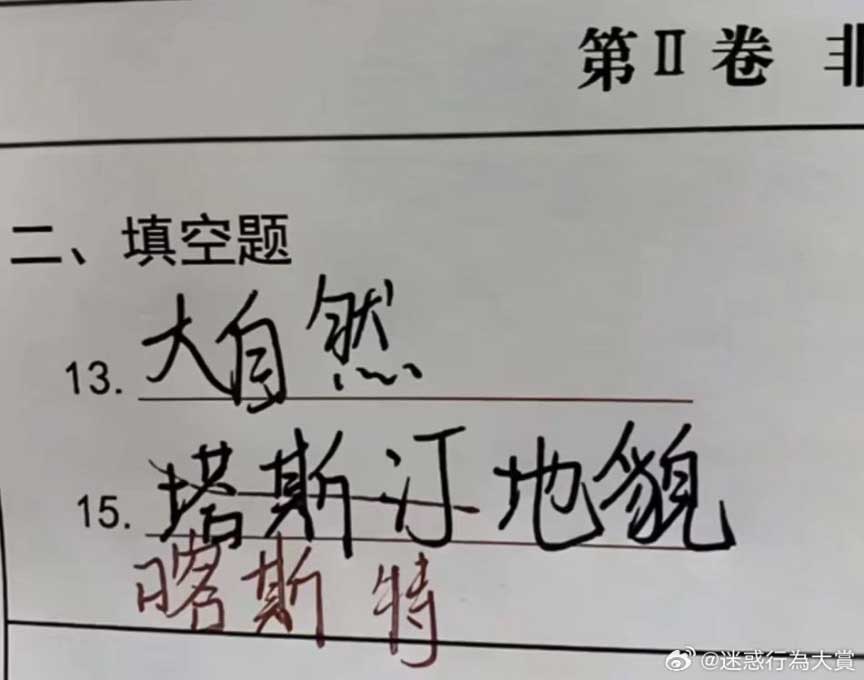 第Ⅱ卷 非
二、填空题
13. 大自然
15. 塔斯汀地貌
喀斯特
@迷惑行為大賞